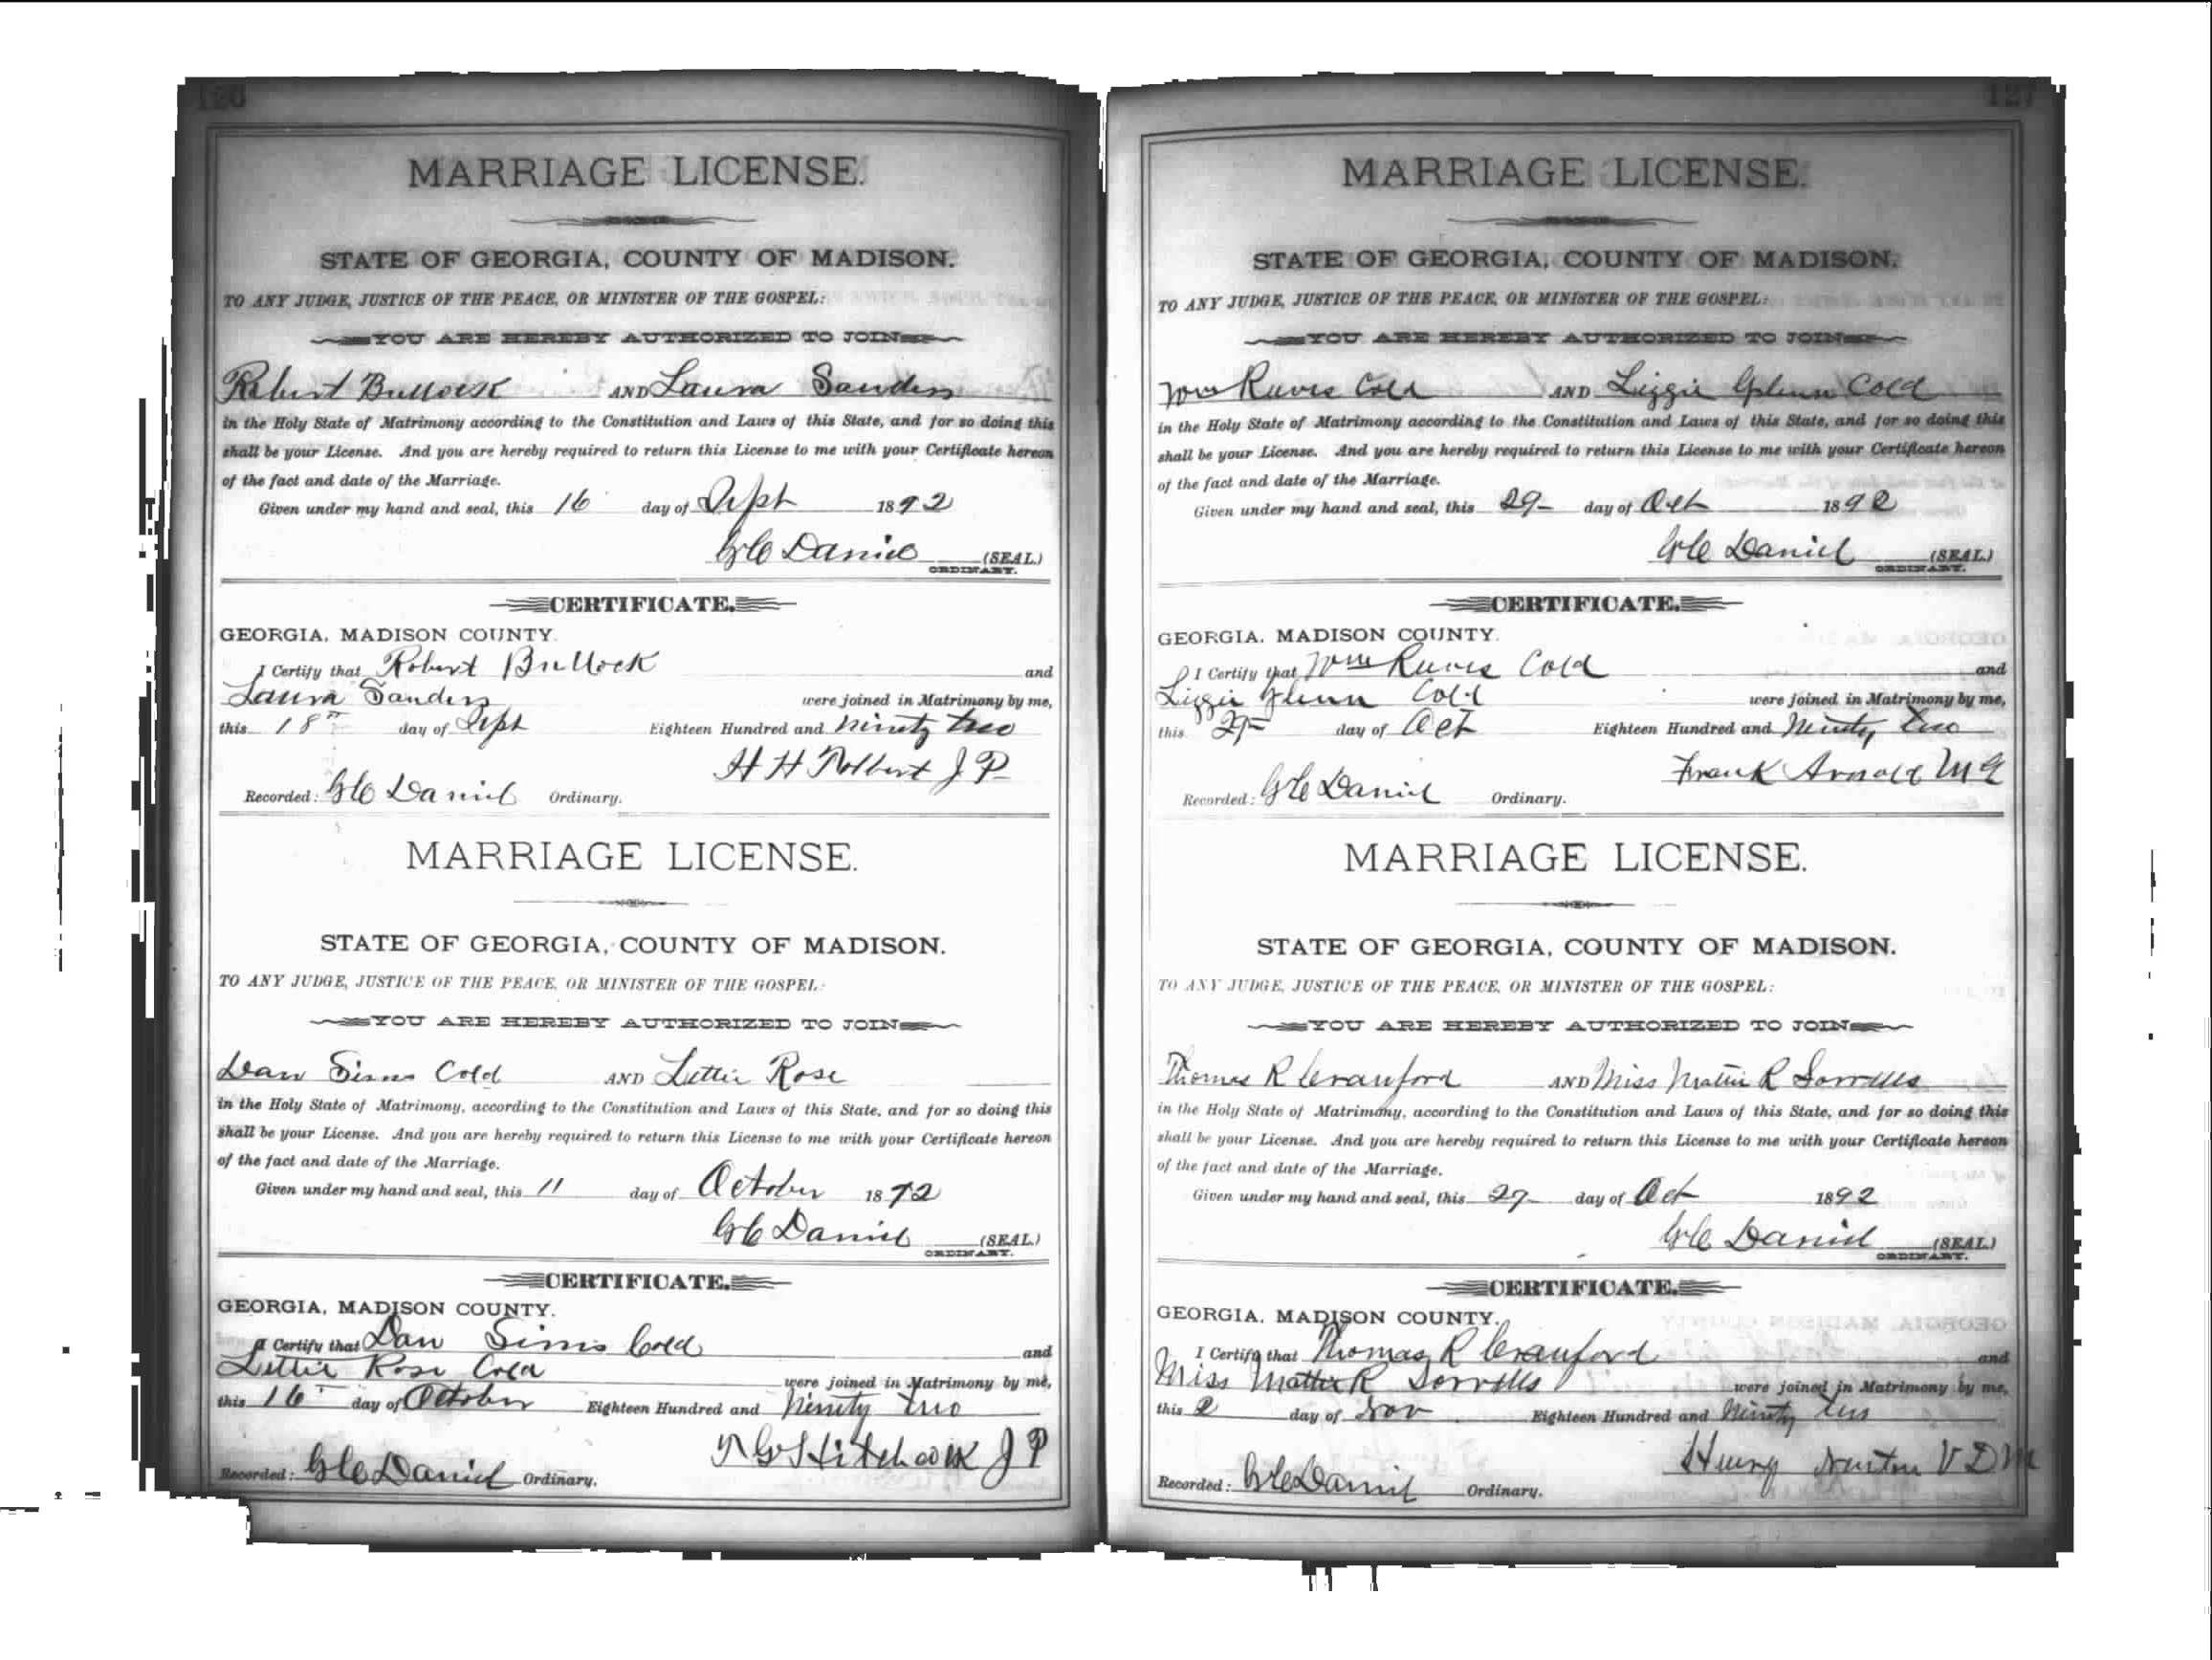 126
MARRIAGE LICENSE.
STATE OF GEORGIA, COUNTY OF MADISON.
TO ANY JUDGE, JUSTICE OF THE PEACE, OR MINISTER OF THE GOSPEL:
YOU ARE HEREBY AUTHORIZED TO JOIN
Robert Bullock AND Laura Sanders
in the Holy State of Matrimony according to the Constitution and Laws of this State, and for so doing this
shall be your License. And you are hereby required to return this License to me with your Certificate hereon
of the fact and date of the Marriage.
Given under my hand and seal, this 16 day of Sept 1892
GC Daniel (SEAL.)
ORDINARY.
CERTIFICATE.
GEORGIA, MADISON COUNTY.
I Certify that Robert Bullock and
Laura Sanders were joined in Matrimony by me,
this 18th day of Sept Eighteen Hundred and ninety two
H H Tolbert J P
Recorded: GC Daniel Ordinary.
MARRIAGE LICENSE.
STATE OF GEORGIA, COUNTY OF MADISON.
TO ANY JUDGE, JUSTICE OF THE PEACE, OR MINISTER OF THE GOSPEL:
YOU ARE HEREBY AUTHORIZED TO JOIN
Dan Sims Cold AND Lettie Rose
in the Holy State of Matrimony, according to the Constitution and Laws of this State, and for so doing this
shall be your License. And you are hereby required to return this License to me with your Certificate hereon
of the fact and date of the Marriage.
Given under my hand and seal, this 11 day of October 1892
GC Daniel (SEAL.)
ORDINARY.
CERTIFICATE.
GEORGIA, MADISON COUNTY.
I Certify that Dan Sims Cold and
Lettie Rose Cold were joined in Matrimony by me,
this 16th day of October Eighteen Hundred and Ninety two
Hitchcock J P
Recorded: GC Daniel Ordinary.
127
MARRIAGE LICENSE.
STATE OF GEORGIA, COUNTY OF MADISON.
TO ANY JUDGE, JUSTICE OF THE PEACE, OR MINISTER OF THE GOSPEL:
YOU ARE HEREBY AUTHORIZED TO JOIN
Wm Raves Cold AND Lizzie Glenn Cold
in the Holy State of Matrimony according to the Constitution and Laws of this State, and for so doing this
shall be your License. And you are hereby required to return this License to me with your Certificate hereon
of the fact and date of the Marriage.
Given under my hand and seal, this 29 day of Oct 1892
GC Daniel (SEAL.)
ORDINARY.
CERTIFICATE.
GEORGIA, MADISON COUNTY.
I Certify that Wm Cold and
Lizzie Glenn Cold were joined in Matrimony by me,
this day of Oct Eighteen Hundred and Ninety two
Frank Arnold M G
Recorded: GC Daniel Ordinary.
MARRIAGE LICENSE.
STATE OF GEORGIA, COUNTY OF MADISON.
TO ANY JUDGE, JUSTICE OF THE PEACE, OR MINISTER OF THE GOSPEL:
YOU ARE HEREBY AUTHORIZED TO JOIN
Thomas R Crawford AND Miss Mattie R Sorrells
in the Holy State of Matrimony, according to the Constitution and Laws of this State, and for so doing this
shall be your License. And you are hereby required to return this License to me with your Certificate hereon
of the fact and date of the Marriage.
Given under my hand and seal, this 27 day of Oct 1892
GC Daniel (SEAL.)
ORDINARY.
CERTIFICATE.
GEORGIA, MADISON COUNTY.
I Certify that Thomas R Crawford and
Miss Mattie R Sorrells were joined in Matrimony by me,
this 2 day of Nov Eighteen Hundred and Ninety two
Henry Newton V D M
Recorded: GC Daniel Ordinary.